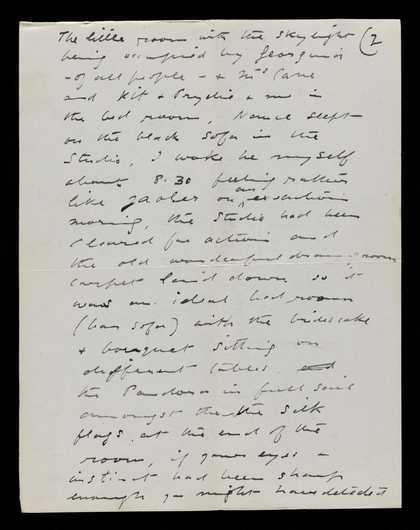 The little room with the skylight (2
being occupied by Georgina
- of all people - & Mrs Cave
and Kit & Prydie & me in
the bed room, Nance slept
on the black sofa in the
Studio, I woke he myself
about 8.30 feeling rather
like gaoler on an execution
morning, the Studio had been
cleared for action and
the old drawing room
carpet laid down so it
was an ideal bed room
(bar sofa) with the bridescake
& bouquet sitting on
different tables. and
the Pandora in full sail
amongst the the silk
flags, at the end of the
room, if your eyes &
instinct had been sharp
enough you might have detected